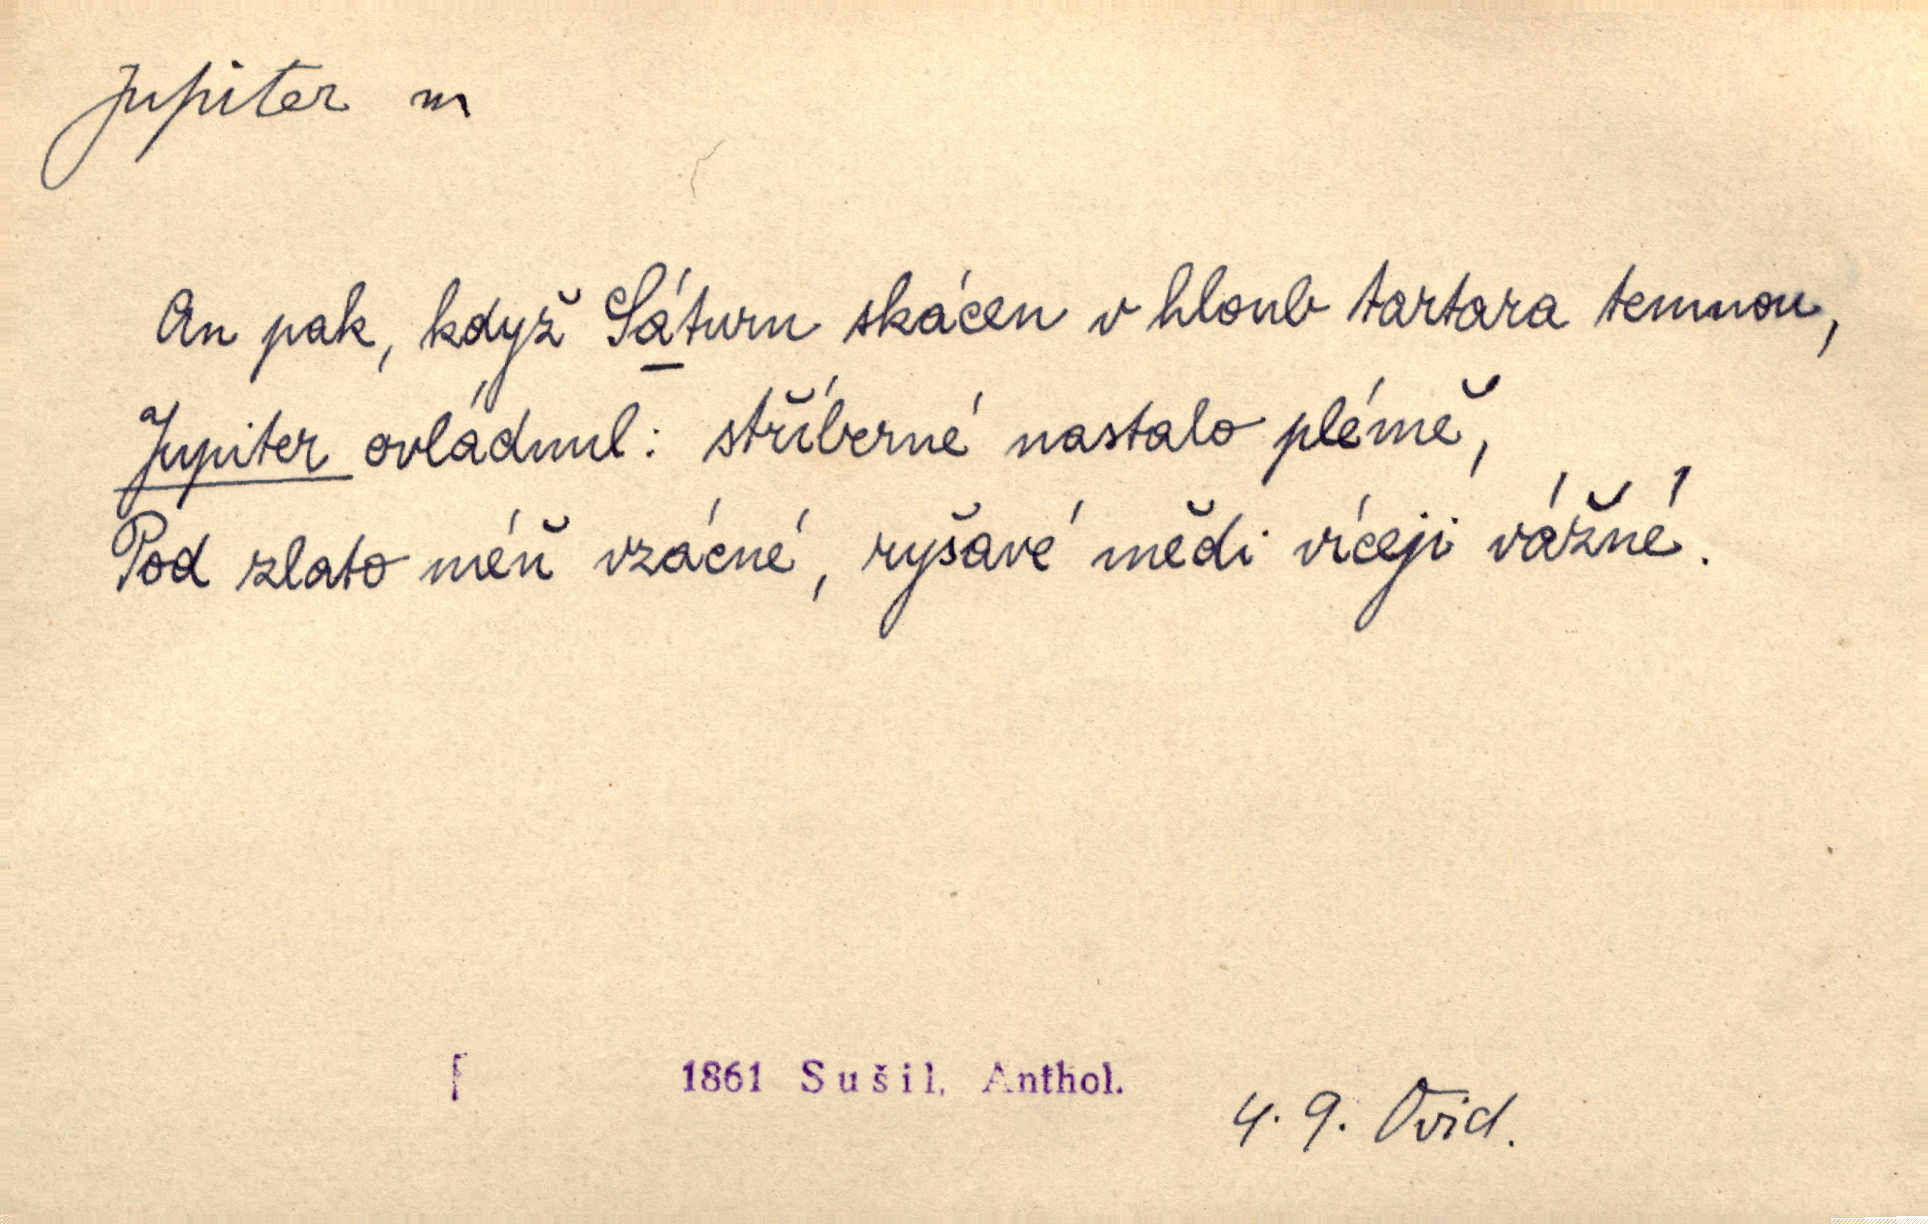 Jupiter m
An pak, když Sáturn skácen v hloub tartara temnou,
Jupiter ovládnul: stříberné nastalo plémě,
Pod zlato méň vzácné, ryšavé mědi víceji vážné.
1861 Sušil, Anthol.
4. 9. Ovid.